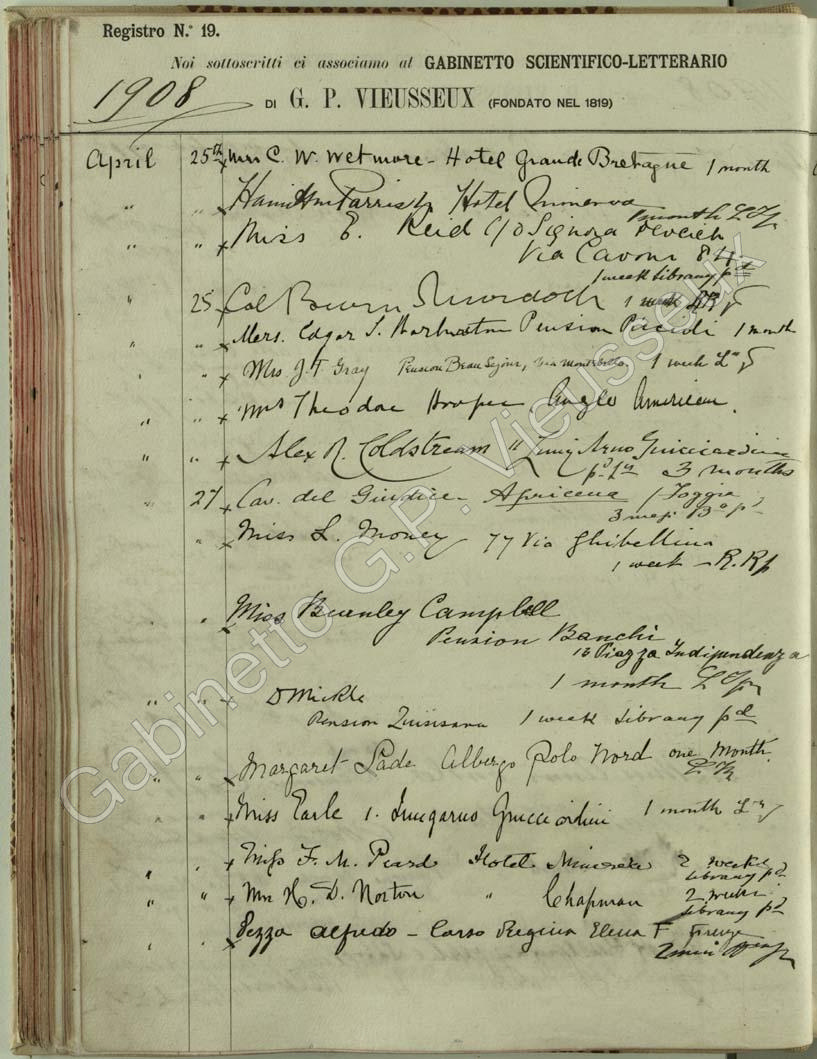 Registro N.° 19.
Noi sottoscritti ci associamo al GABINETTO SCIENTIFICO-LETTERARIO
1908
DI G. P. VIEUSSEUX (FONDATO NEL 1819)
April 25th Mrs C. W. Wetmore - Hotel Grande Bretagne 1 month
" " Hamilton Parrish Hotel Minerva
1 month
" " Miss E. Reid c/o Signora
Via Cavour 84
1 week Library pd
" 25 Col Murdoch 1 week
" " Mrs. Edgar S. Pension Piccioli 1 month
" " Mrs J. F. Gray Pension Beau Séjour, Via Montebello. 1 week
" " Mrs Theodore Hooper Anglo American.
" " Alex R. Coldstream 11 Lung Arno Guicciardini
3 months
27 Cav. del Giudice - Apricena (Foggia)
3 mesi
" Miss L. Money 77 Via Ghibellina
1 week - R. R.
" Miss Burnley Campbell
Pension Banchi
13 Piazza Indipendenza
1 month
" " D Mickle
Pension Quisisana 1 week Library pd
" " Margaret Albergo Polo Nord one Month.
" " Miss Earle 1. Lungarno Guicciardini 1 month
" " Miss F. M. Peard Hotel Minerva 2 weeks
Library pd
" " Mrs H. D. Norton " Chapman 2 weeks
Library pd
" " Pezza Alfredo - Corso Regina Elena Firenze
Gabinetto G.P. Vieusseux